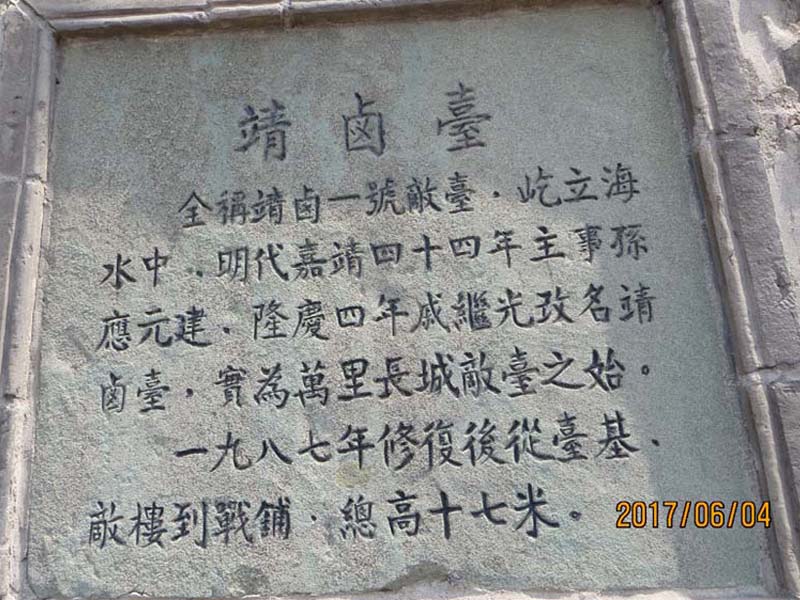 靖鹵臺
全稱靖鹵一號敵臺，屹立海
水中．明代嘉靖四十四年主事孫
應元建．隆慶四年戚繼光改名靖
鹵臺，實為萬里長城敵臺之始。
一九八七年修復後從臺基．
敵樓到戰鋪．總高十七米。
2017/06/04